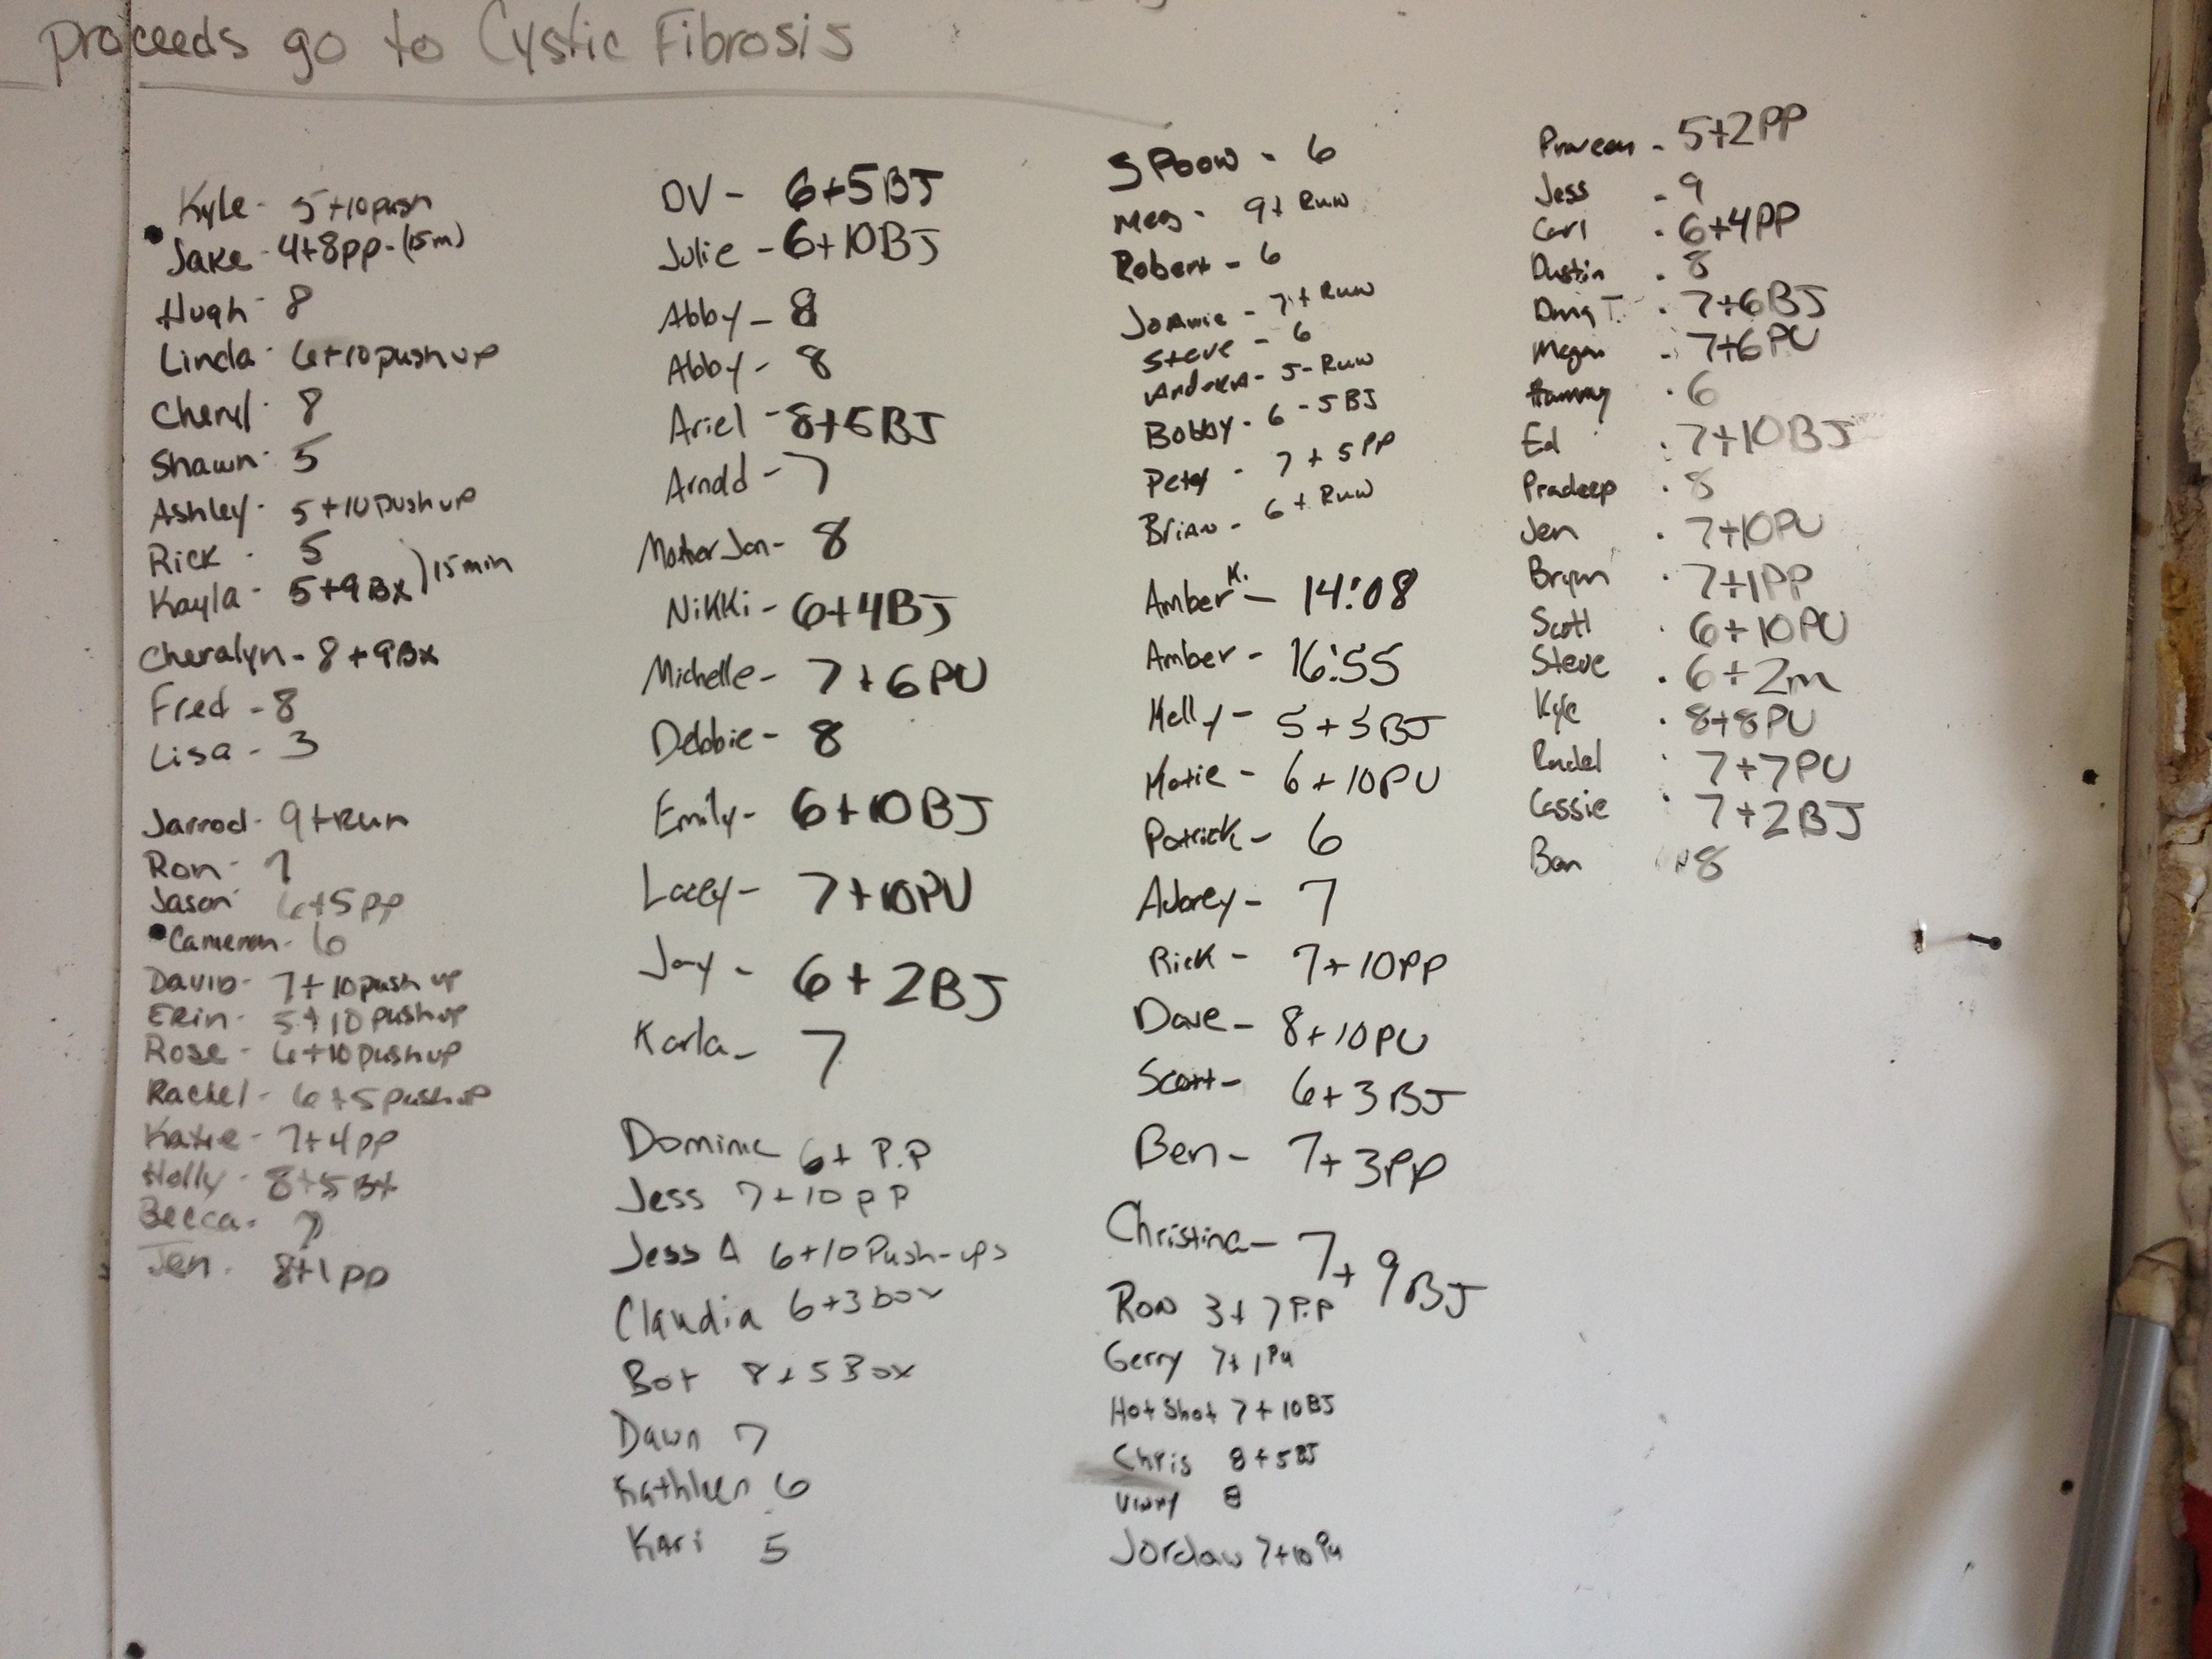 proceeds go to Cystic Fibrosis
Kyle - 5+10push
Jake - 4+8pp - (15m)
Hugh - 8
Linda - 6+10pushup
Cheryl - 8
Shawn - 5
Ashley - 5+10pushup
Rick - 5
Kayla - 5+9Bx ) 15min
Cheralyn - 8+9Bx
Fred - 8
Lisa - 3
Jarrod - 9+Run
Ron - 7
Jason 6+5pp
Cameron - 6
David - 7+10push up
Erin - 5+10pushup
Rose - 6+10pushup
Rachel - 6+5pushup
Katie - 7+4pp
Holly - 8+5Bx
Becca - 7
Jen - 8+1pp
DV - 6+5BJ
Julie - 6+10BJ
Abby - 8
Abby - 8
Ariel - 8+5BJ
Arnold - 7
Mother Jon - 8
Nikki - 6+4BJ
Michelle - 7+6PU
Debbie - 8
Emily - 6+10BJ
Lacey - 7+10PU
Jay - 6+2BJ
Karla - 7
Dominic 6+ P.P
Jess 7+10pp
Jess A 6+10Push-ups
Claudia 6+3box
Bot 8+5Box
Dawn 7
Kathleen 6
Kari 5
Spoon - 6
Meg - 9+Run
Robert - 6
Joannie - 7+Run
Steve - 6
Andrea - 5-Run
Bobby - 6-5BJ
Petey - 7+5PP
Brian - 6+Run
Amber K. - 14:08
Amber - 16:55
Kelly - 5+5BJ
Katie - 6+10PU
Patrick - 6
Aubrey - 7
Rick - 7+10PP
Dave - 8+10PU
Scott - 6+3BJ
Ben - 7+3PP
Christina - 7+9BJ
Ron 3+7P.P
Gerry 7+1Pu
Hot Shot 7+10BJ
Chris 8+5BJ
Vinny 8
Jordan 7+10Pu
Praveen - 5+2PP
Jess - 9
Carl - 6+4PP
Dustin - 8
Doug T. - 7+6BJ
Megan - 7+6PU
Hammy - 6
Ed - 7+10BJ
Pradeep - 8
Jen - 7+10PU
Bryan - 7+1PP
Scott - 6+10PU
Steve - 6+2m
Kyle - 8+8PU
7+7PU
Cassie - 7+2BJ
Ben 8